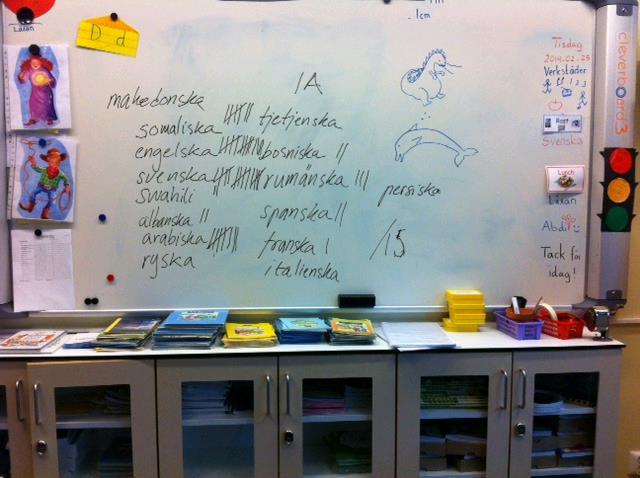 Läxan
D d
1cm
1A
makedonska
somaliska
engelska
svenska
swahili
albanska ||
arabiska
ryska
tjetjenska
bosniska ||
rumänska |||
spanska ||
franska |
italienska
persiska
/15
Tisdag
2014.02.25
Verkstäder
1 2 3
Svenska
Lunch
Läxan
Abdi
Tack för
idag!
cleverboard3